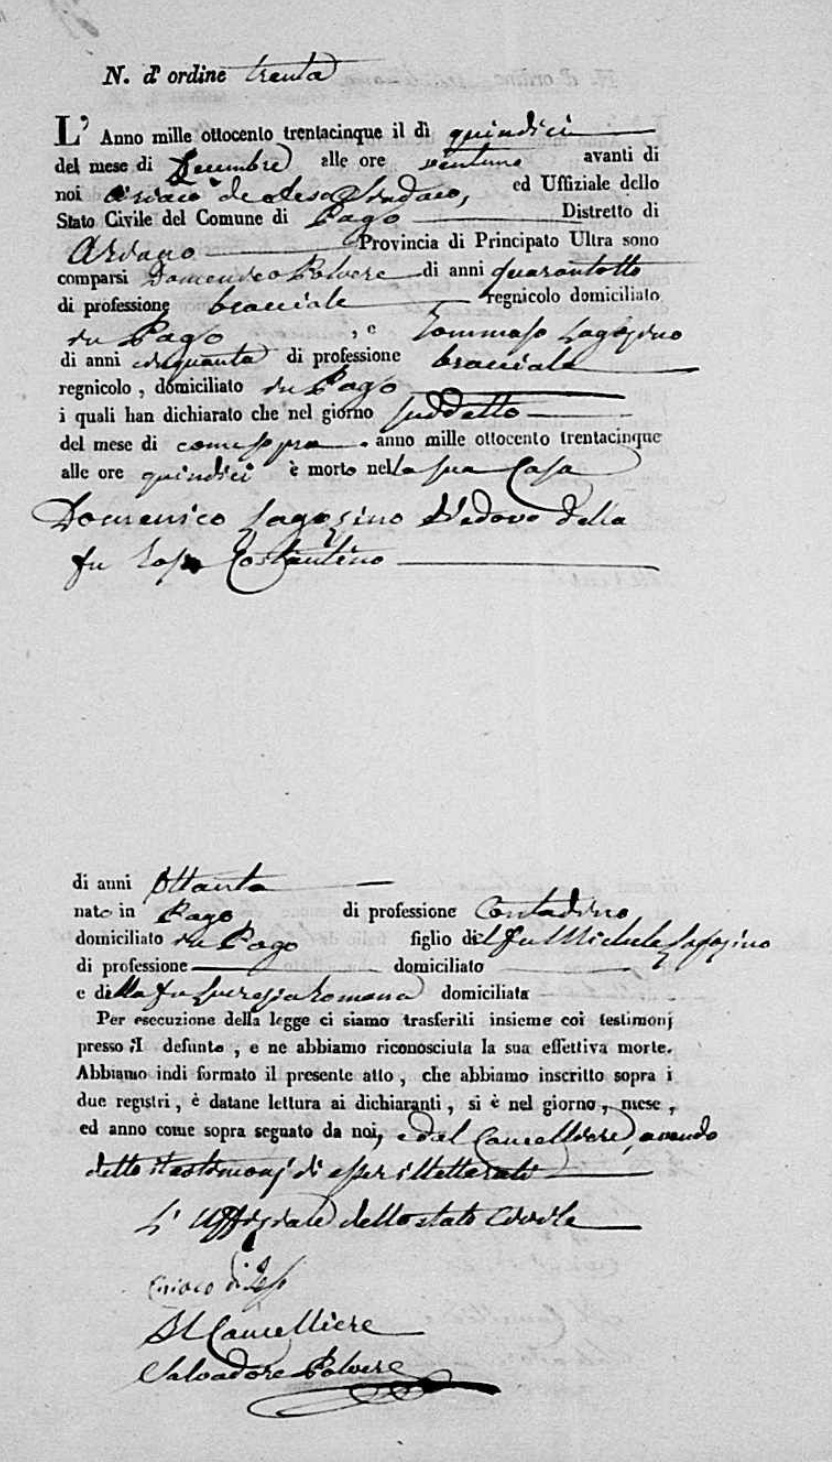 N. d' ordine trenta
L' Anno mille ottocento trentacinque il dì quindici
del mese di Decembre alle ore ventuno avanti di
noi Ciriaco de Sindaco, ed Uffiziale dello
Stato Civile del Comune di Pago Distretto di
Ariano Provincia di Principato Ultra sono
comparsi Domenico Polvere di anni quarantotto
di professione bracciale regnicolo domiciliato
in Pago , e Tommaso
di anni cinquanta di professione bracciale
regnicolo , domiciliato in Pago
i quali han dichiarato che nel giorno suddetto
del mese di come sopra anno mille ottocento trentacinque
alle ore quindici è morto nella sua Casa
Domenico Vedovo della
fu Costantino
di anni Ottanta
nato in Pago di professione Contadino
domiciliato in Pago figlio del fu Michele
di professione domiciliato
e della fu Romano domiciliata
Per esecuzione della legge ci siamo trasferiti insieme coi testimonj
presso il defunto , e ne abbiamo riconosciuta la sua effettiva morte.
Abbiamo indi formato il presente atto , che abbiamo inscritto sopra i
due registri , è datane lettura ai dichiaranti , si è nel giorno , mese ,
ed anno come sopra segnato da noi, e dal Cancelliere, avendo
detto i testimonj di esser illetterati
L' Uffiziale dello stato Civile
Il Cancelliere
Salvadore Polvere